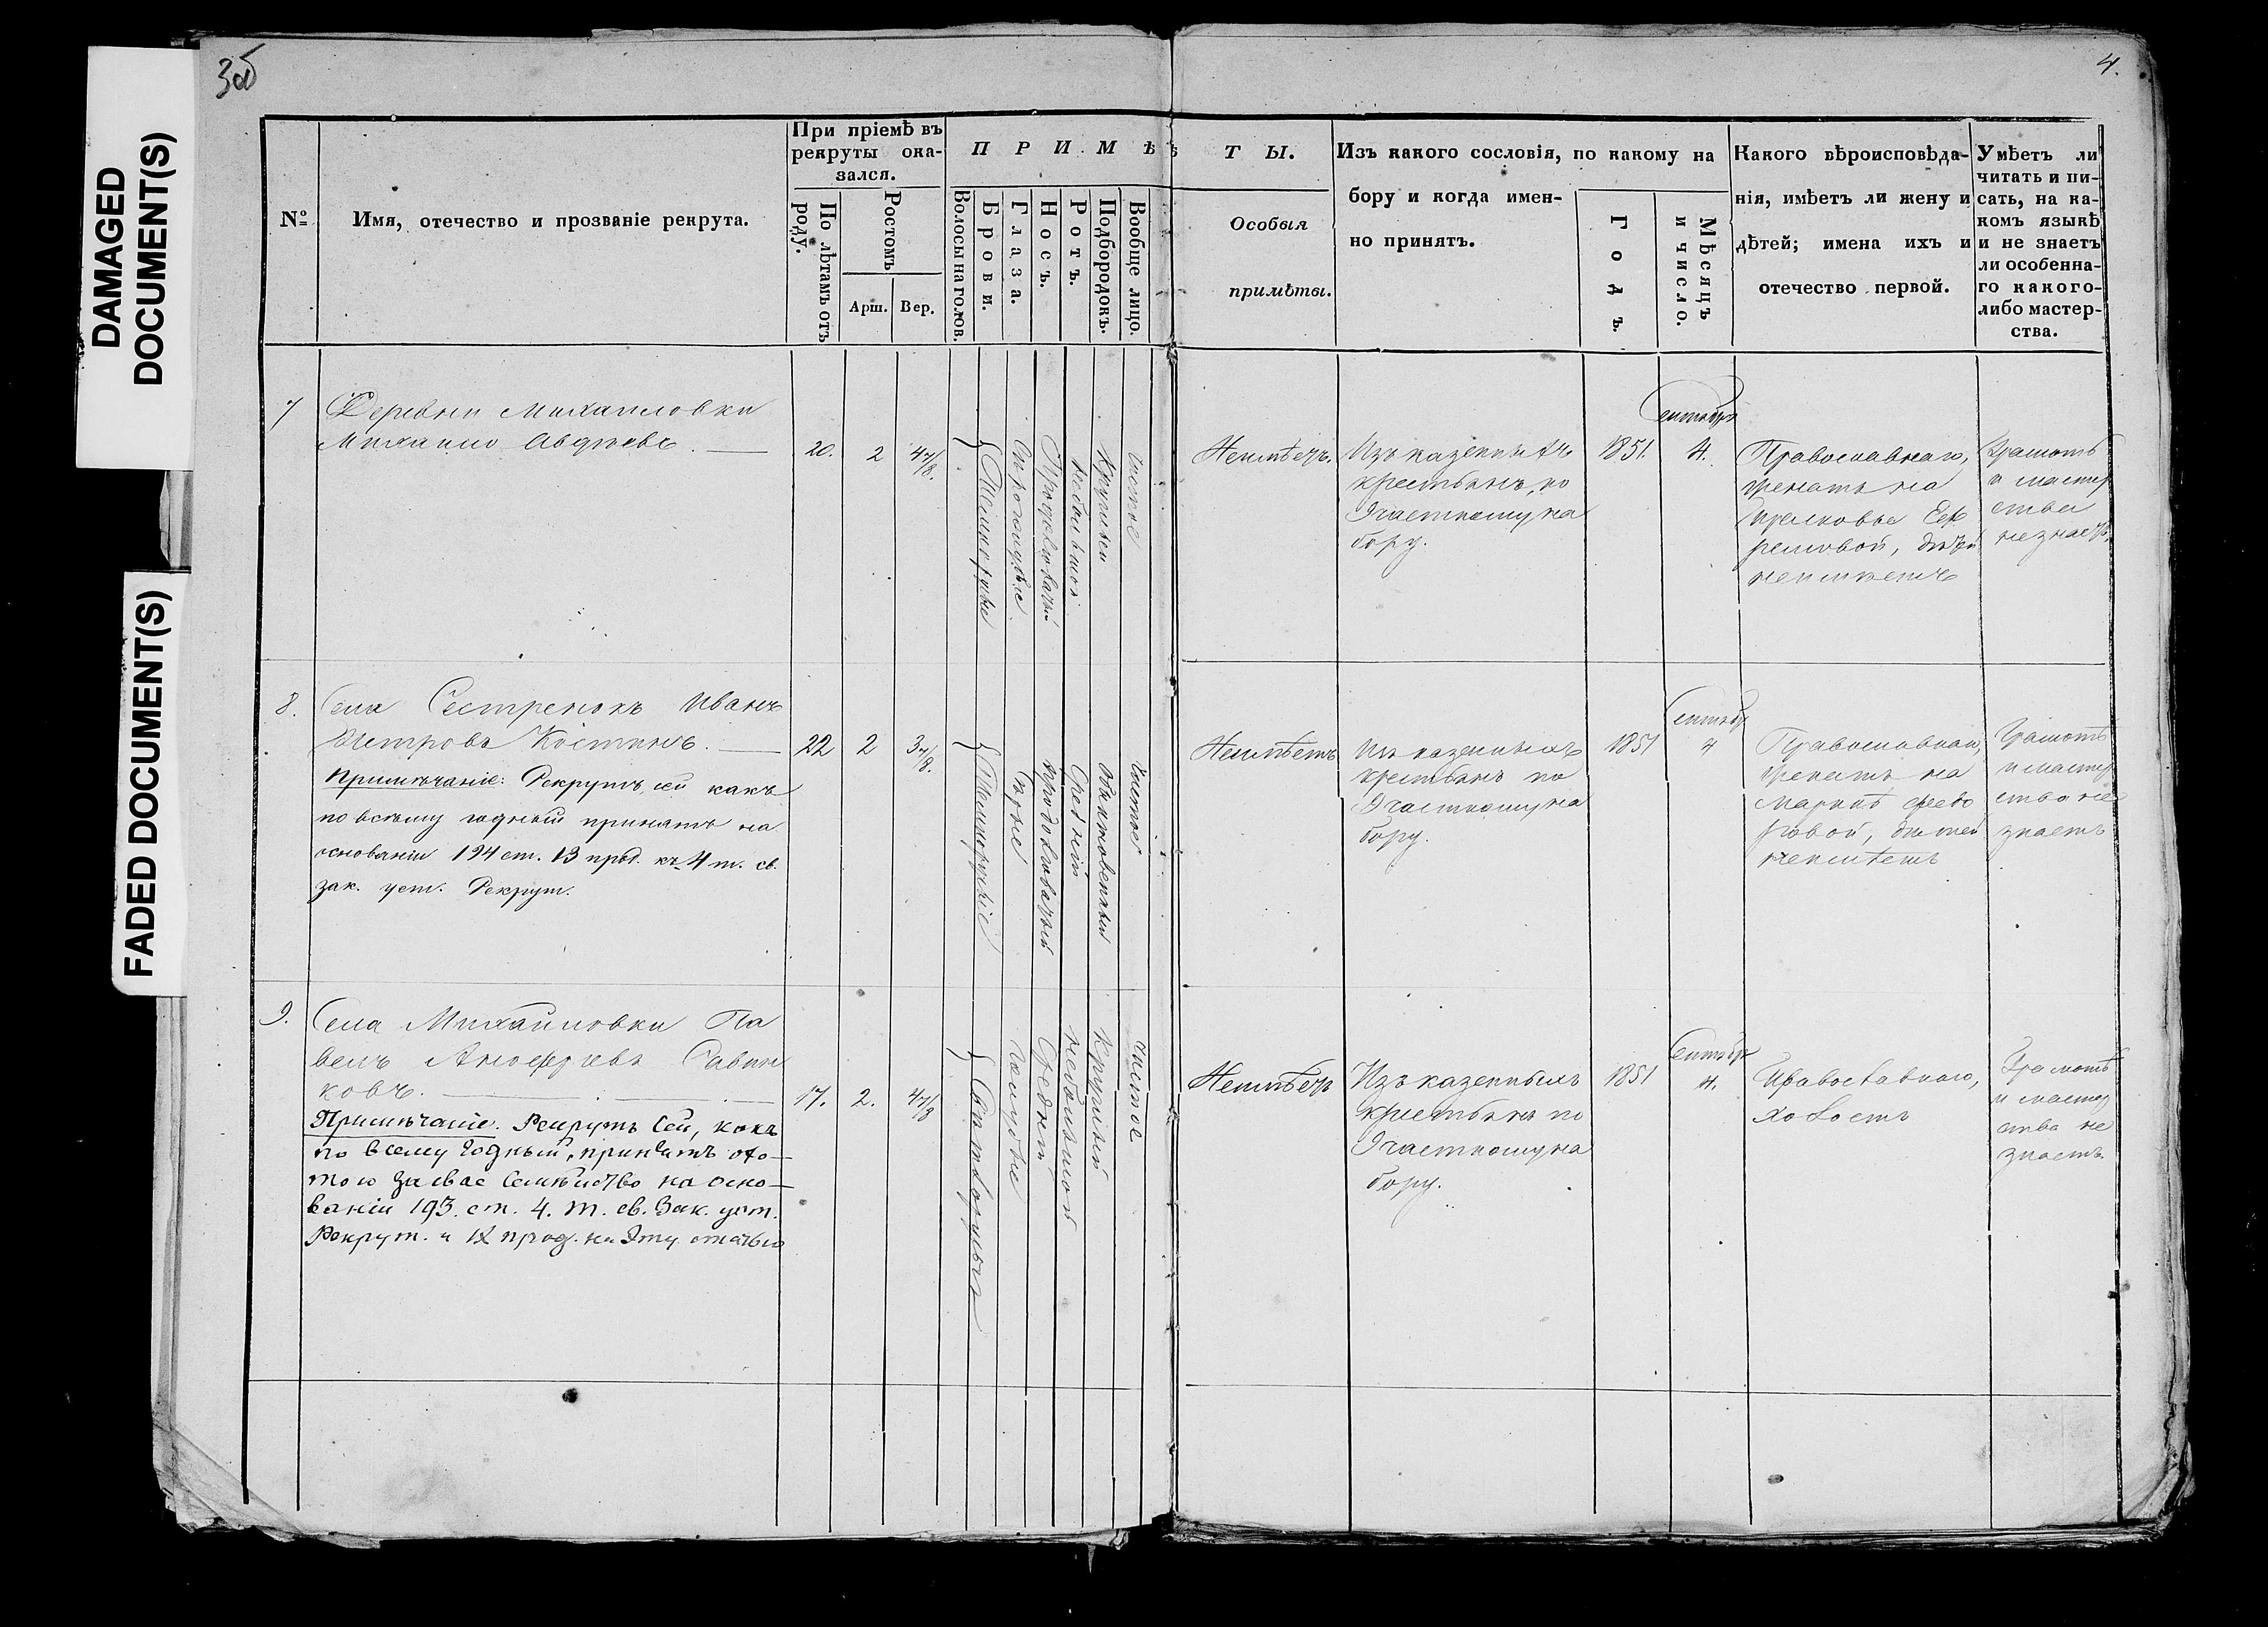 DAMAGED
DOCUMENT(S)
FADED DOCUMENT(S)
3об
4.
№
Имя, отечество и прозваніе рекрута.
При пріемѣ въ
рекруты ока-
зался.
По лѣтамъ отъ
роду.
Ростомъ
Арш. Вер.
ПРИМѢ
ТЫ.
Волосы на голов.
Брови.
Глаза.
Носъ.
Ротъ.
Подбородокъ.
Вообще лицо.
Особыя
примѣты.
Изъ какого сословія, по какому на
бору и когда имен-
но принятъ.
Годъ.
Мѣсяцъ
и число.
Какого вѣроисповѣда-
нія, имѣетъ ли жену и
дѣтей; имена ихъ и
отечество первой.
Умѣетъ ли
читать и пи-
сать, на ка-
комъ языкѣ
и не знаетъ
ли особенна-
го какого-
либо мастер-
ства.
7
Деревни Михайловки
Михайло Авдѣевъ.
20.
2
4 7/8.
Темнорусые
Сѣроголубые
Продолговатый
Небольшой
Круглый
чистое
Неимѣетъ.
Изъ казенныхъ
крестьянъ, по
Участному на
бору.
1851.
Сентября
4.
Православнаго,
женатъ на
Ееф
ремовой, дѣтей
неимѣетъ
Грамотѣ
и мастер
ства
незнаетъ,
8.
Села Сестренокъ Иванъ
Петровъ Костинъ.
Примѣчаніе: Рекрутъ сей какъ
по всѣму годный принятъ на
основаніи 194 ст. 13 прод. къ 4 т. св.
зак. уст. Рекрут.
22
2
3 7/8.
Темнорусые
Карие
продолговатый
Средний
обыкновенный
чистое
Неимѣетъ
Изъ казенныхъ
крестьянъ по
Участному на
бору.
1851
Сентябр
4
Православнаго,
женатъ на
Марѣѣ Федо
ровой, дѣтей
неимѣетъ
Грамотѣ
и мастер
ства не
знаетъ
9.
Села Михайловки Па
велъ Анофріевъ Савин
ковъ.
Примѣчаніе. Рекрутъ сей, какъ
по всему годный, принятъ охо-
тою за свое семѣйство на осно-
ваніи 193. ст. 4. т. св. Зак. уст.
Рекрут. и IX прод. на эту статью
17.
2.
4 7/8
Свѣтлорусыя
голубые
Средний
небольшой
круглый
чистое
Неимѣетъ
Изъ казенныхъ
крестьянъ по
Участному на
бору.
1851
Сентябр
4.
Православнаго,
холостъ
Грамотѣ
и мастер
ства не
знаетъ.